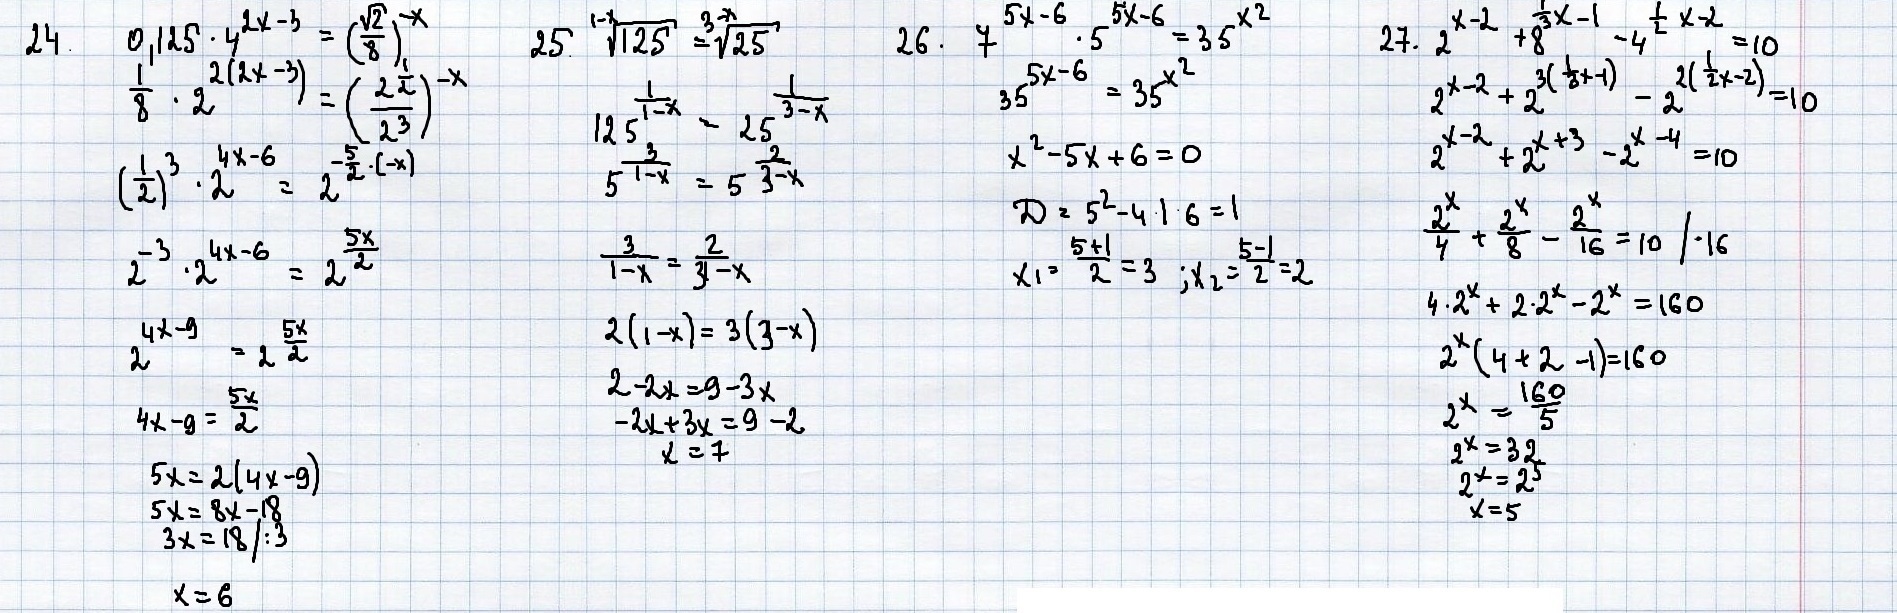 24. 0,125 · 4^(2x-3) = (√2/8)^(-x)
1/8 · 2^(2(2x-3)) = (2^(1/2)/2^3)^(-x)
(1/2)^3 · 2^(4x-6) = 2^(-5/2·(-x))
2^(-3) · 2^(4x-6) = 2^(5x/2)
2^(4x-9) = 2^(5x/2)
4x-9 = 5x/2
5x = 2(4x-9)
5x = 8x-18
3x = 18 /:3
x = 6
25 ^(1-x)√125 = ^(3-x)√25
125^(1/(1-x)) = 25^(1/(3-x))
5^(3/(1-x)) = 5^(2/(3-x))
3/(1-x) = 2/(3-x)
2(1-x) = 3(3-x)
2-2x = 9-3x
-2x+3x = 9-2
x = 7
26. 7^(5x-6) · 5^(5x-6) = 35^(x^2)
35^(5x-6) = 35^(x^2)
x^2-5x+6=0
D = 5^2-4·1·6=1
x1 = (5+1)/2 = 3 ; x2 = (5-1)/2 = 2
27. 2^(x-2) + 8^(1/3x-1) - 4^(1/2x-2) = 10
2^(x-2) + 2^(3(1/3x-1)) - 2^(2(1/2x-2)) = 10
2^(x-2) + 2^(x+3) - 2^(x-4) = 10
2^x/4 + 2^x/8 - 2^x/16 = 10 /·16
4·2^x + 2·2^x - 2^x = 160
2^x(4+2-1)=160
2^x = 160/5
2^x = 32
2^x = 2^5
x = 5